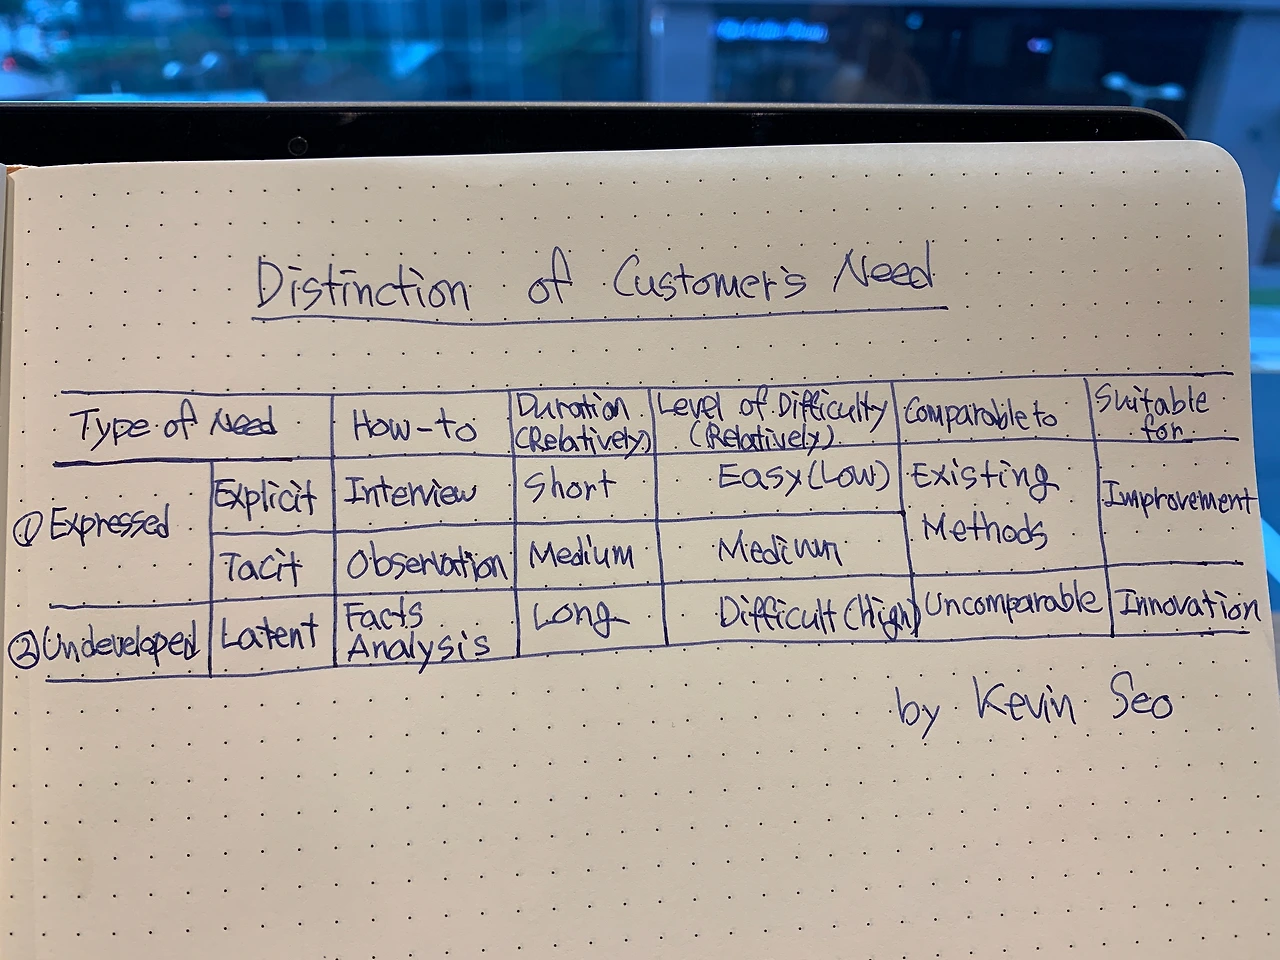 Distinction of Customer's Need
Type of Need How-to Duration (Relatively) Level of Difficulty (Relatively) Comparable to Suitable for
① Expressed Explicit Interview Short Easy (Low) Existing Methods Improvement
Tacit Observation Medium Medium
② Undeveloped Latent Facts Analysis Long Difficult (High) Uncomparable Innovation
by Kevin Seo